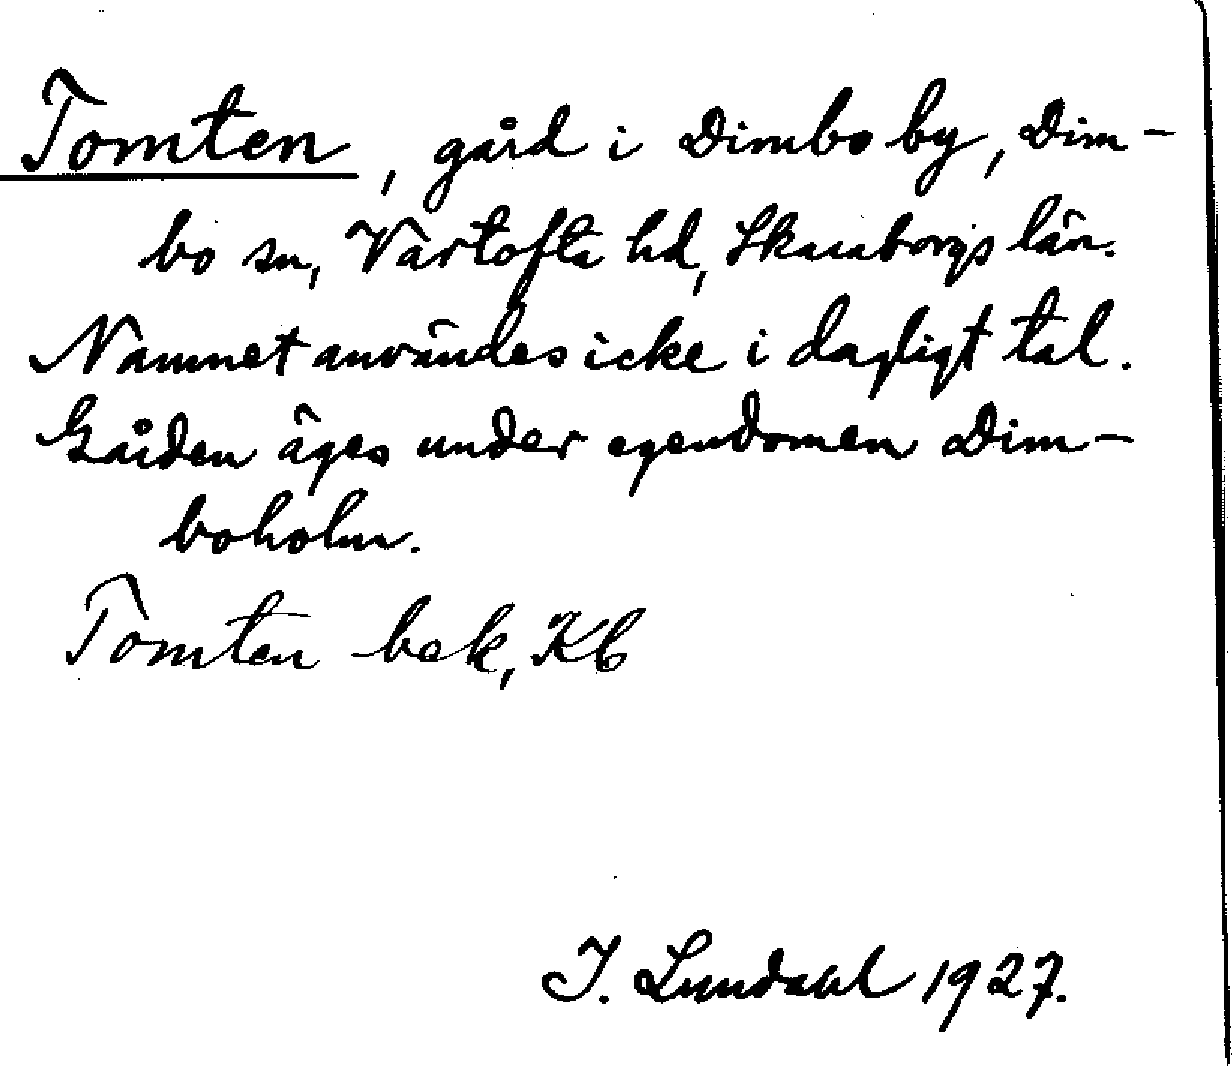 Tomten, gård i Dimbo by, Dim-
bo sn, Vartofta hd, Skaraborgs län.
Namnet användes icke i dagligt tal.
Gården äges under egendomen Dim-
boholm.
Tomten bek, Kb
I. Lundahl 1927.